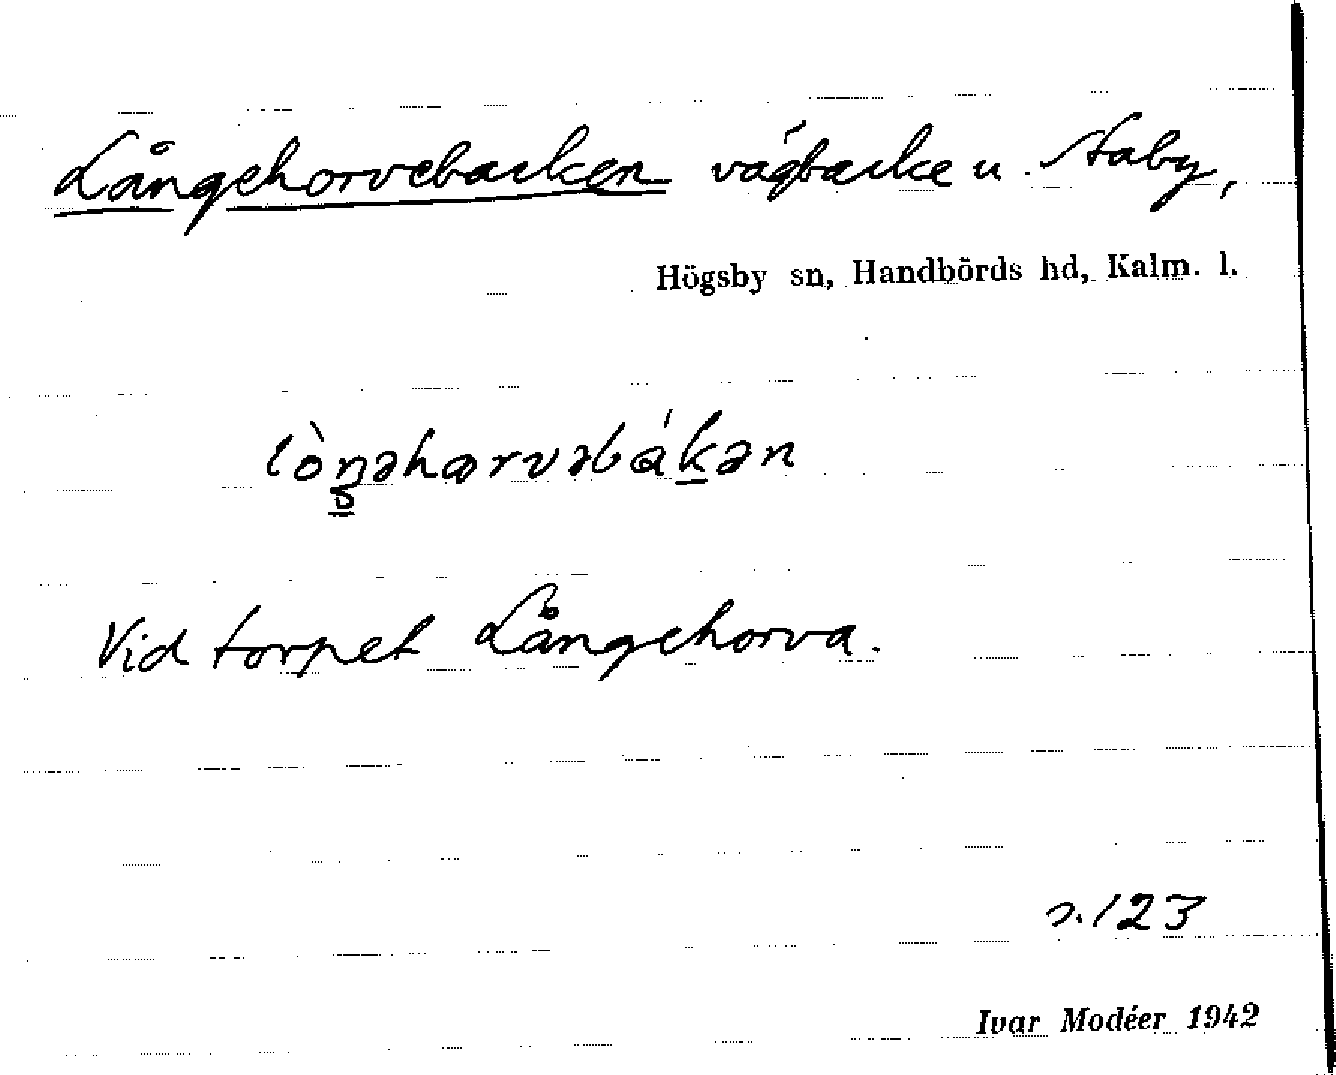 Långehorvebacken vägbacke u. Staby,
Högsby sn, Handbörds hd, Kalm. l.
lòŋəhorvəbákən
Vid torpet Långehorva.
s. 123
Ivar Modéer 1942